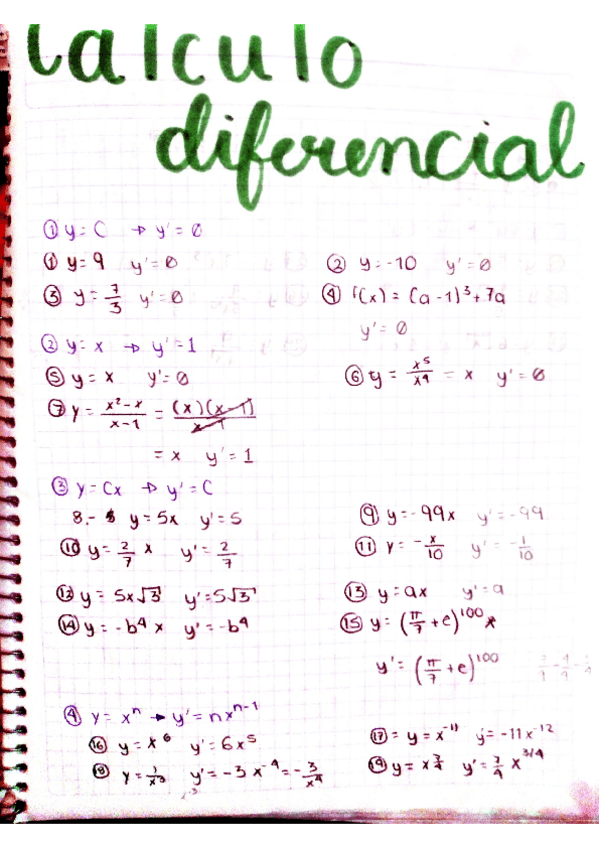 Calculo
diferencial
① y = C → y' = 0
① y = 9 y' = 0
② y = -10 y' = 0
③ y = 7/3 y' = 0
④ f(x) = (a-1)³ + 7a
y' = 0
② y = x → y' = 1
⑤ y = x y' = 0
⑥ y = x⁵/x⁴ = x y' = 0
⑦ y = x²-x/x-1 = (x)(x-1)/x-1
= x y' = 1
③ y = Cx → y' = C
8.- y = 5x y' = 5
⑨ y = -99x y' = -99
⑩ y = 2/7 x y' = 2/7
⑪ y = -x/10 y' = -1/10
⑫ y = 5x√3 y' = 5√3
⑬ y = ax y' = a
⑭ y = -b⁴ x y' = -b⁴
⑮ y = (π/7 + e)¹⁰⁰ x
y' = (π/7 + e)¹⁰⁰
④ y = xⁿ → y' = nxⁿ⁻¹
⑯ y = x⁶ y' = 6x⁵
⑰ = y = x⁻¹¹ y' = -11x⁻¹²
⑱ y = 1/x³ y' = -3x⁻⁴ = -3/x⁴
⑲ y = x^7/4 y' = 7/4 x^3/4